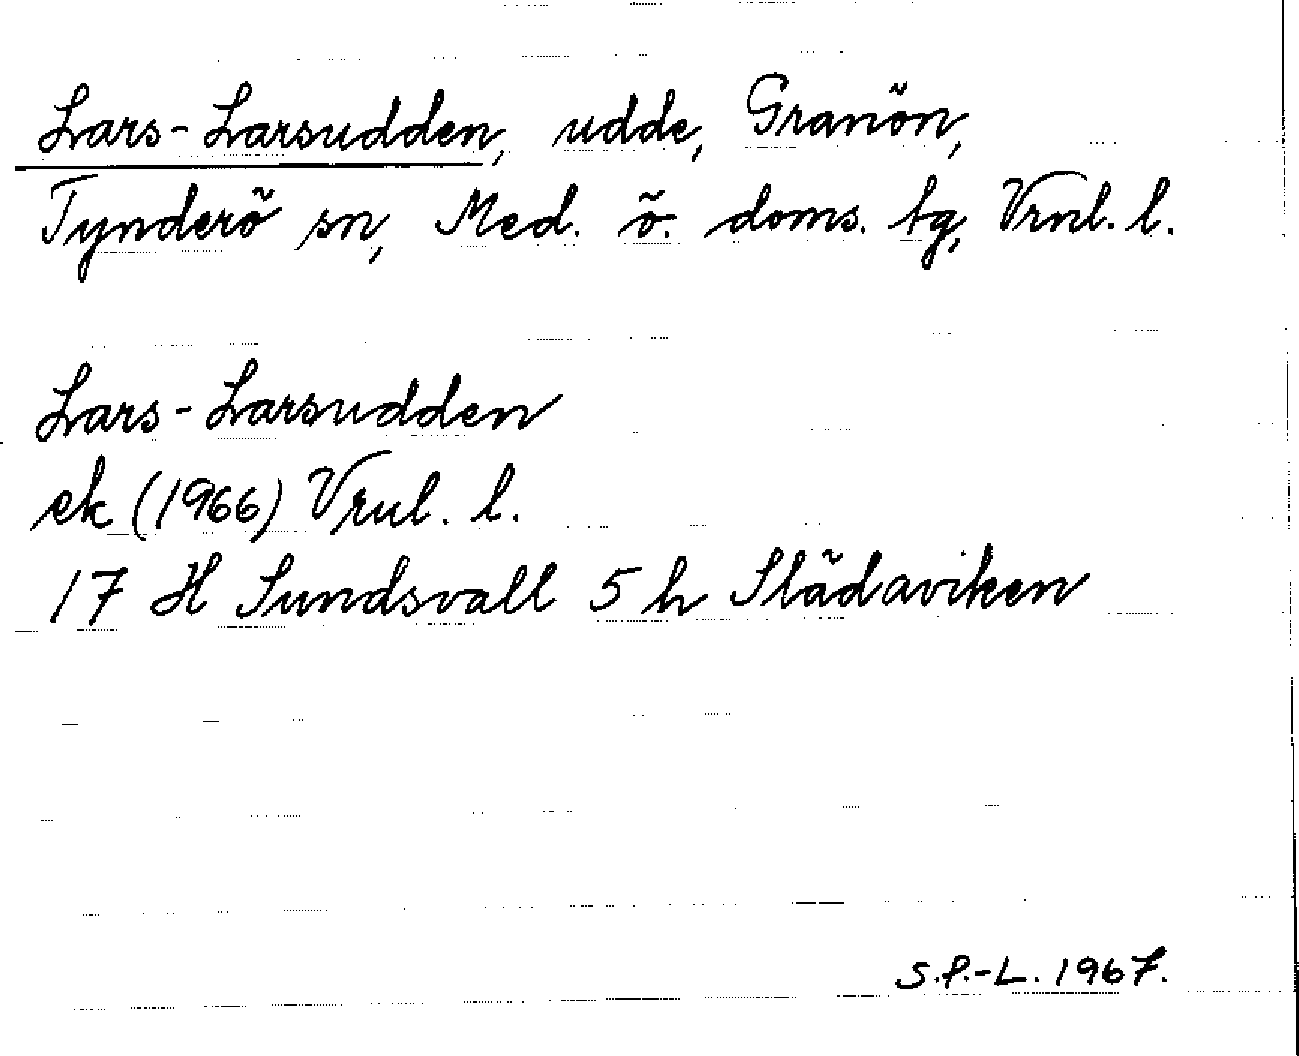 Lars-Larsudden, udde, Granön,
Tynderö sn, Med. ö. doms. tg, Vrnl. l.
Lars-Larsudden
ek (1966) Vrnl. l.
17 H Sundsvall 5 h Slädaviken
S.P.-L. 1967.